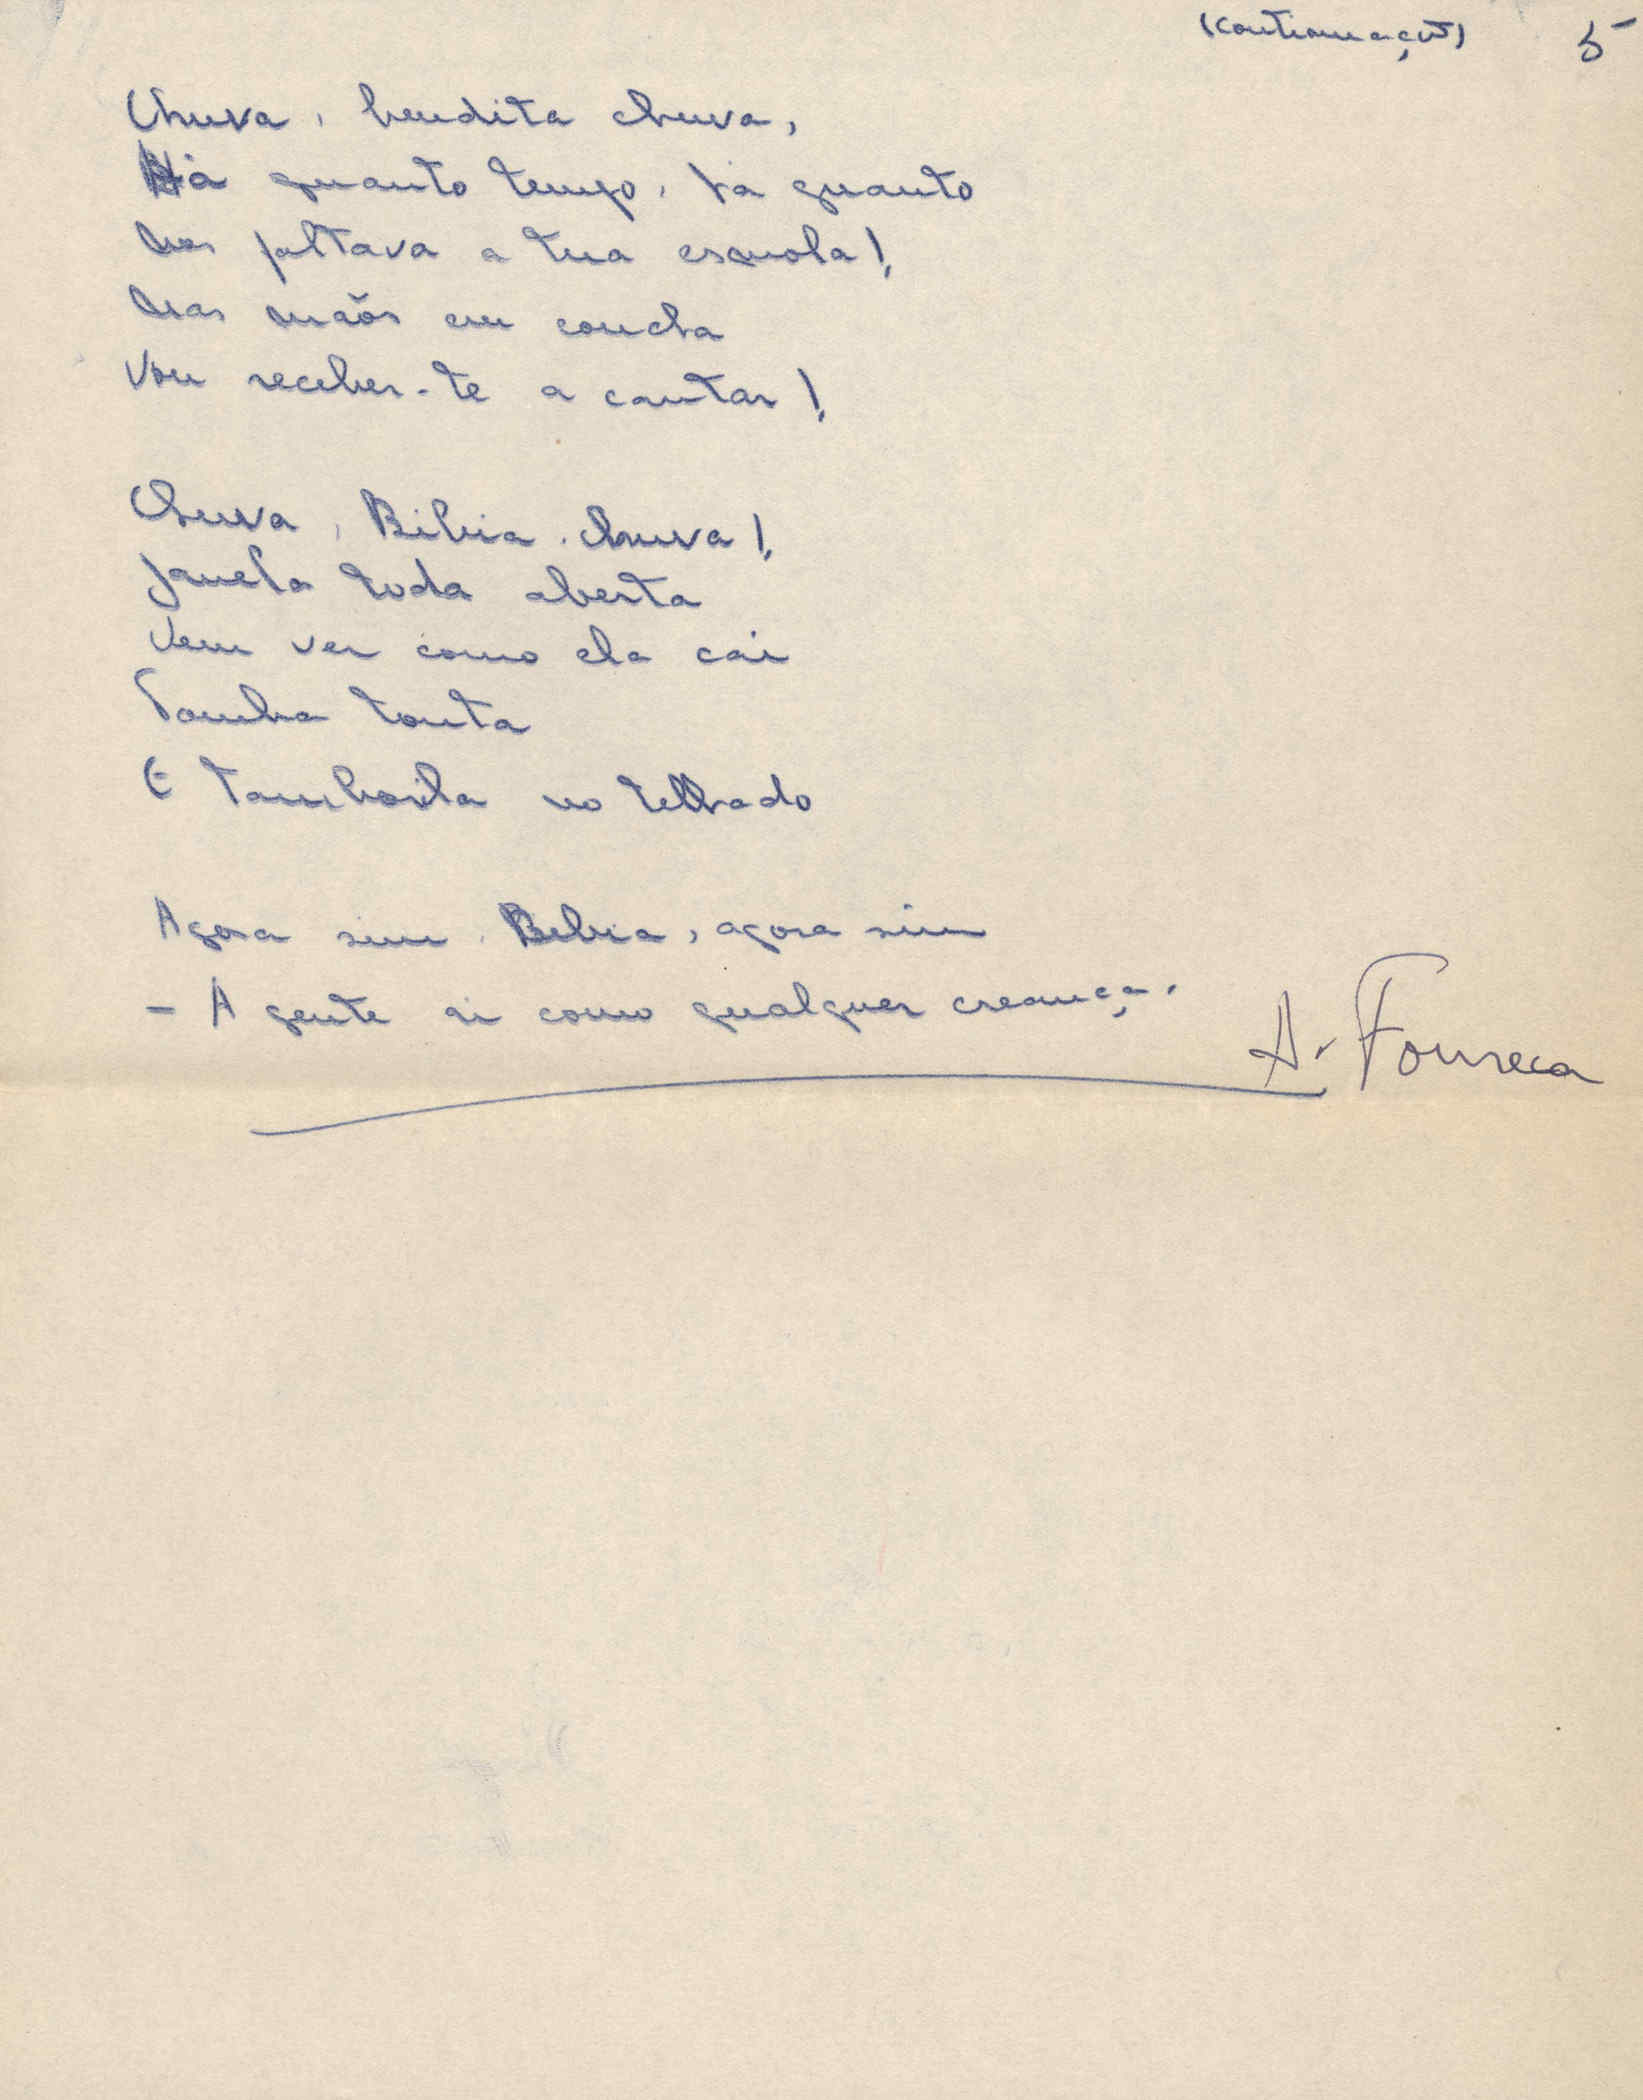 (continuação) 5
Chuva, bendita chuva,
Há quanto tempo, há quanto
Nos faltava a tua esmola!
Nas mãos em concha
Vou receber-te a cantar!
Chuva, Bibia, chuva!
Janela toda aberta
Vem ver como ela cai
Tomba tonta
E tamborila no telhado
Agora sim, Bibia, agora sim
- A gente ri como qualquer creança.
A. Fonseca